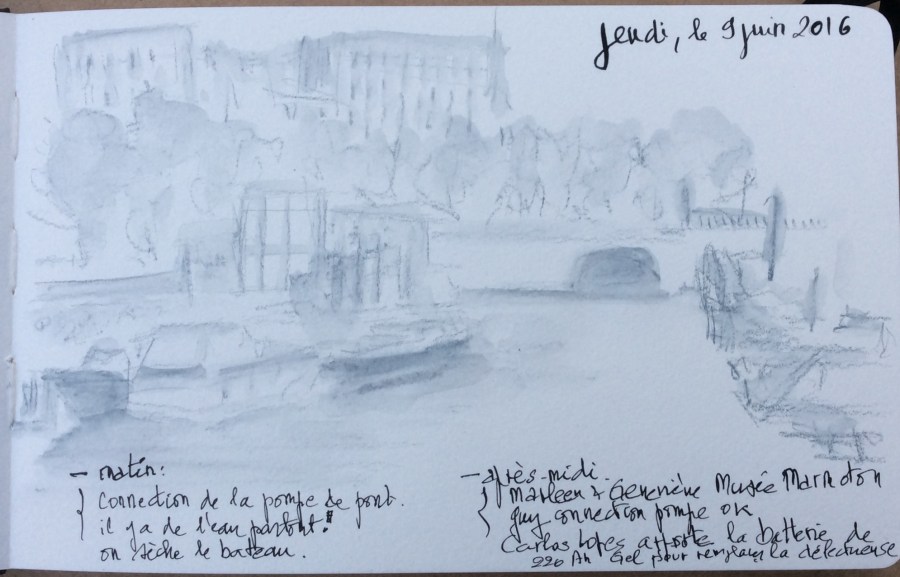 Jeudi, le 9 juin 2016
— matin:
Connection de la pompe de pont.
il y a de l'eau partout!
on sèche le bateau.
— après-midi.
Marleen & Geneviève Musée Marmoton
Guy connection pompe OK
Carlos Lopes apporte la batterie de
220 Ah Gel pour remplacer la défectueuse